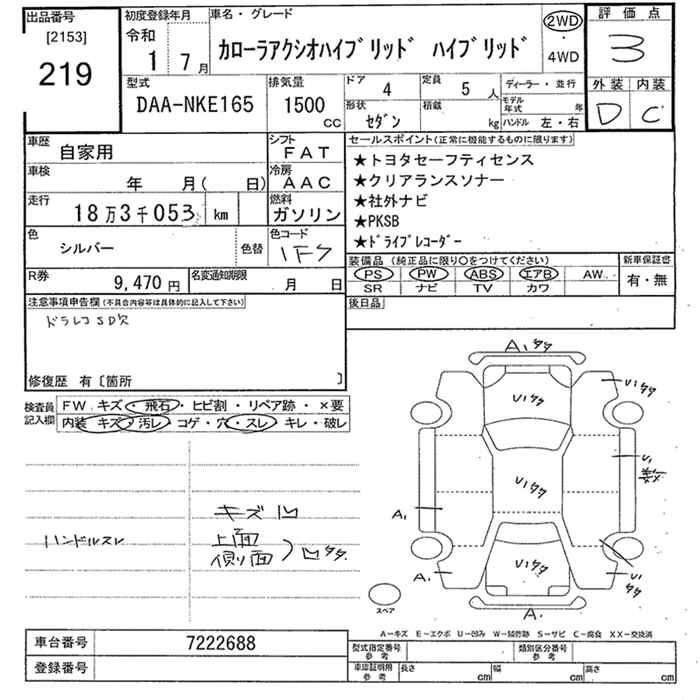 出品番号
[2153]
219
初度登録年月
令和
1 7月
車名・グレード
カローラアクシオハイブリッド ハイブリッド
2WD
・
4WD
評価点
3
外装 内装
D C
型式
DAA-NKE165
排気量
1500
CC
ドア
4
定員
5 人
形状
セダン
積載
kg
ディーラー・並行
モデル年式 年
ハンドル 左・右
車歴
自家用
シフト
FAT
車検
年 月( 日)
冷房
AAC
走行
18万3千053 km
燃料
ガソリン
色
シルバー
色替
色コード
1F7
R券
9,470 円
名変通知期限
月 日
セールスポイント(正常に機能するものに限ります)
★トヨタセーフティセンス
★クリアランスソナー
★社外ナビ
★PKSB
★ドライブレコーダー
装備品 (純正品に限り○をつけてください)
PS PW ABS エアB AW
SR ナビ TV カワ
新車保証書
有・無
後日品
注意事項申告欄(不具合内容等は具体的に記入して下さい)
ドラレコSD欠
修復歴 有〔箇所 〕
検査員記入欄
FW キズ・飛石・ヒビ割・リペア跡・×要
内装 キズ・汚レ・コゲ・穴・スレ・キレ・破レ
ハンドルスレ
キズ凹
上面
側り面 ) 凹タタ
A₁タタ
U₁タタ
U₁タタ
U₁
U₁タタ
A₁
A₁
U₁タタ
U₁タタ
A₁
スペア
A−キズ E−エクボ U−凹み W−補修跡 S−サビ C−腐食 XX−交換済
車台番号
7222688
登録番号
型式指定番号
参考
類別区分番号
参考
車庫証明用
参考
長さ cm
幅 cm
高さ cm